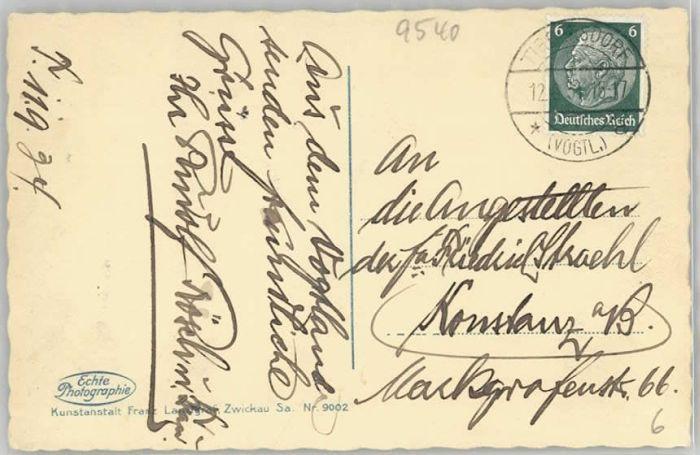 9540
6 6
Deutsches Reich
12. 16-17
(VOGTL.)
K. 11.9.34.
Aus dem Vogtland
senden herzliche
Grüsse
Ihr Rudolf
An
die Angestellten
der Fa Stroehl
Konstanz a/B.
Markgrafenstr. 66.
6
Echte
Photographie
Kunstanstalt Franz Landgraf, Zwickau Sa. Nr. 9002